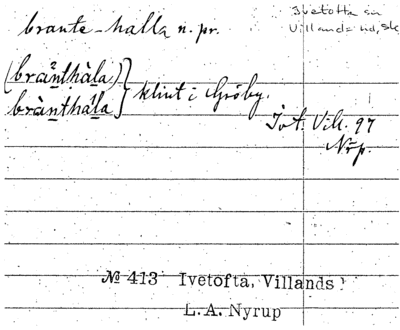 brante-halla n. pr.
Ivetofta sn
Villands hd, Sk
(bränthàla)}
brànthála} klint i Gröby.
Ivt. Vill. 97
Nrp.
№ 413 Ivetofta, Villands
L.A. Nyrup